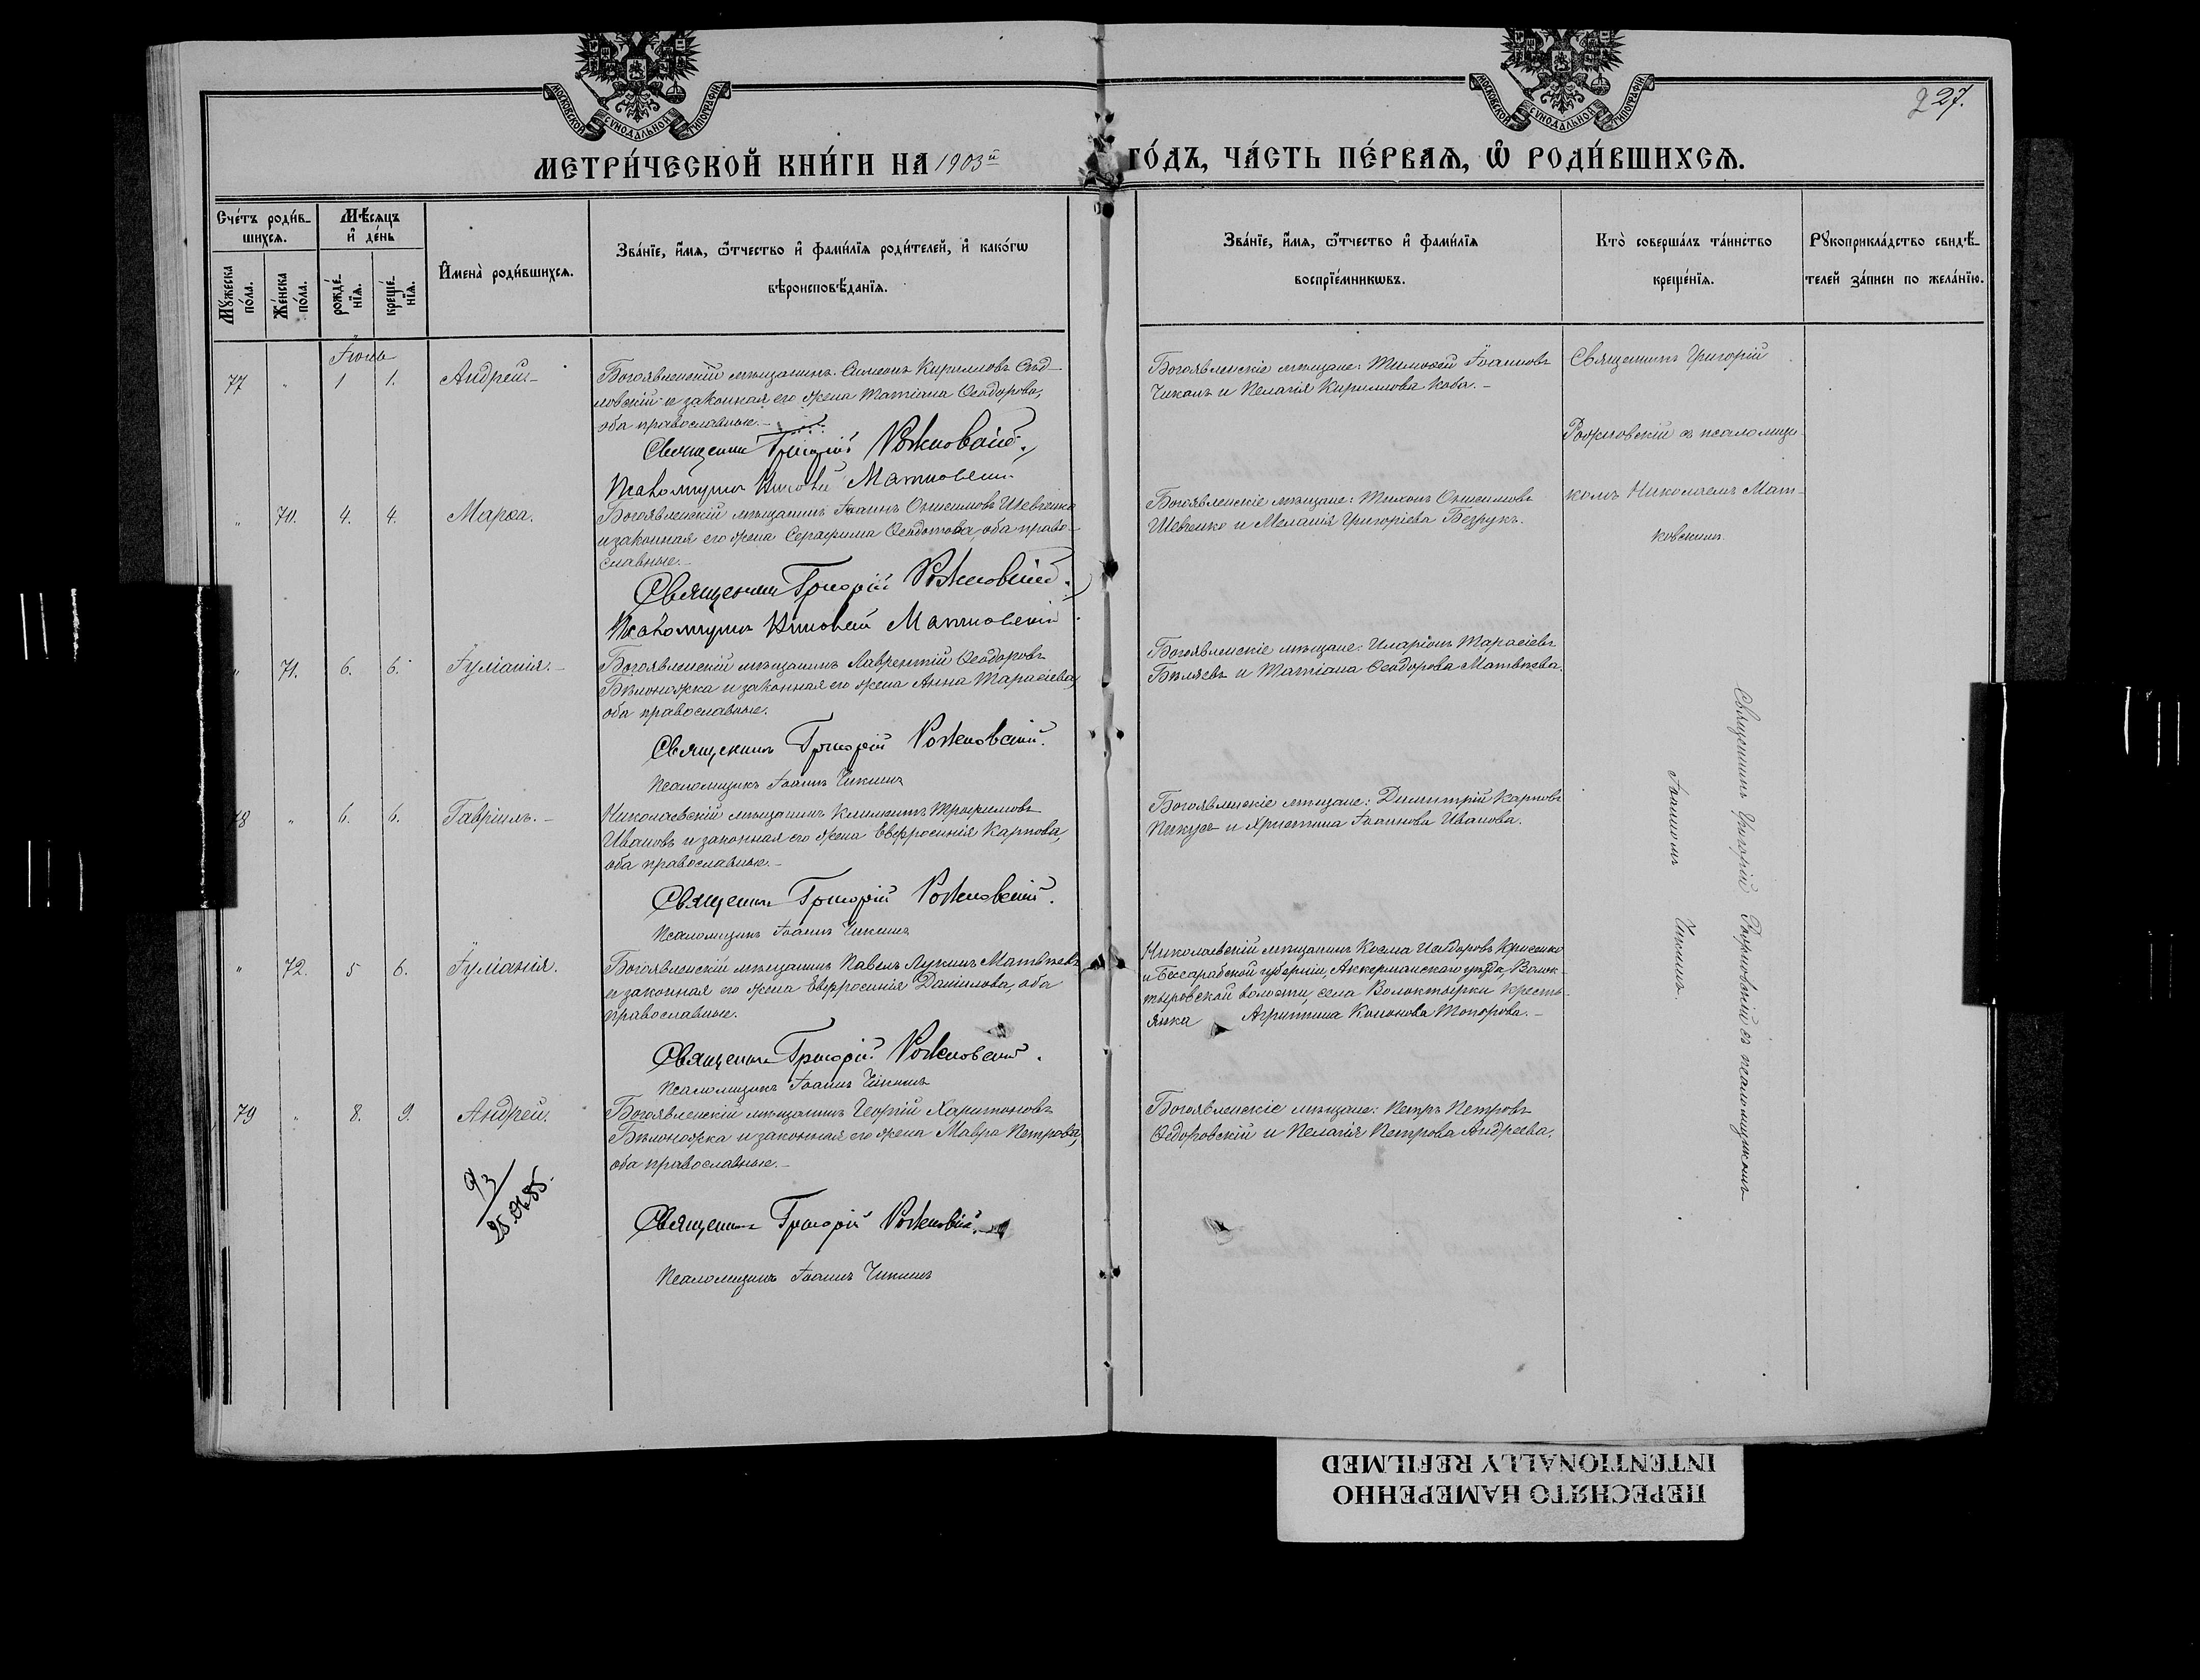 МОСКОВСКОЙ СУНОДАЛЬНОЙ ТИПОГРАФІИ
МОСКОВСКОЙ СУНОДАЛЬНОЙ ТИПОГРАФІИ
227.
МЕТРИ́ЧЕСКОЙ КНИ́ГИ НА 1903й ГО́ДЪ, ЧА́СТЬ ПЕ́РВАѦ, Ѡ РОДИ́ВШИХСѦ.
Сче́тъ роди́в-
шихсѧ.
Мѣ́сѧцъ
и де́нь
И́мена̀ роди́вшихсѧ.
Зва́нїе, и́мѧ, ѻ́тчество и фами́лїѧ роди́телей, и како́гѡ
вѣроисповѣ́данїѧ.
Мꙋжеска
по́ла.
Же́нска
по́ла.
рожде́-
нїѧ.
креще́-
нїѧ.
Зва́нїе, и́мѧ, ѻ́тчество и фами́лїѧ
воспрїе́мникѡвъ.
Кто̀ соверша́лъ та́инство
креще́нїѧ.
Рꙋкоприкла́дство свидѣ́-
телей за́писи по жела́нїю.
Іюнь
77 " 1 1. Андрей
Богоявленскій мѣщанинъ Симеонъ Кирилловъ
и законная его жена Татіана Ѳеодорова,
оба православные.
Священникъ Григорій Рожновскій.
Псаломщикъ Николай Матковскій
Богоявленскіе мѣщане: Тимоѳей Іоанновъ
и Пелагія Кириллова Коба.
Священникъ Григорій
Рожновскій съ псаломщи-
комъ Николаемъ Мат-
ковскимъ
" 70. 4. 4. Марѳа.
Богоявленскій мѣщанинъ Іоаннъ Онисимовъ Шевченко
и законная его жена Серафима Ѳеодотова, оба право-
славные.
Священникъ Григорій Рожновскій.
Псаломщикъ Николай Матковскій
Богоявленскіе мѣщане: Тихонъ Онисимовъ
Шевченко и Меланія Григоріева Безрукъ.
" 71. 6. 6. Іуліанія.
Богоявленскій мѣщанинъ Лаврентій Ѳеодоровъ
Бѣлоножка и законная его жена Анна Тарасіева,
оба православные.
Священникъ Григорій Рожновскій.
Псаломщикъ Іоаннъ Чикинъ
Богоявленскіе мѣщане: Иларіонъ Тарасіевъ
Бѣляевъ и Татіана Ѳеодорова Матвѣева.
78 " 6. 6. Гавріилъ.
Николаевскій мѣщанинъ Климентъ Трофимовъ
Ивановъ и законная его жена Евфросинія Карпова,
оба православные.
Священникъ Григорій Рожновскій.
Псаломщикъ Іоаннъ Чикинъ
Богоявленскіе мѣщане: Димитрій Карповъ
и Христина Іоаннова Иванова.
" 72. 5 6. Іуліанія.
Богоявленскій мѣщанинъ Павелъ Лукинъ Матвѣевъ
и законная его жена Евфросинія Даніилова, оба
православные.
Священникъ Григорій Рожновскій.
Псаломщикъ Іоаннъ Чикинъ
Николаевскій мѣщанинъ Косма Исидоровъ
и Бессарабской губерніи, Аккерманскаго уѣзда, Волон-
тыровской волости, села Волонтыровки кресть-
янка Агриппина Кононова Топорова.
79 " 8. 9. Андрей.
Богоявленскій мѣщанинъ Георгій Харитоновъ
Бѣлоножка и законная его жена Мавра Петрова,
оба православные.
Священникъ Григорій Рожновскій.
Псаломщикъ Іоаннъ Чикинъ
Богоявленскіе мѣщане: Петръ Петровъ
Ѳедоровскій и Пелагія Петрова Андреева.
Священникъ Григорій Рожновскій съ псаломщикомъ
Іоанномъ Чикинымъ.
ПЕРЕСНЯТО НАМЕРЕННО
INTENTIONALLY REFILMED